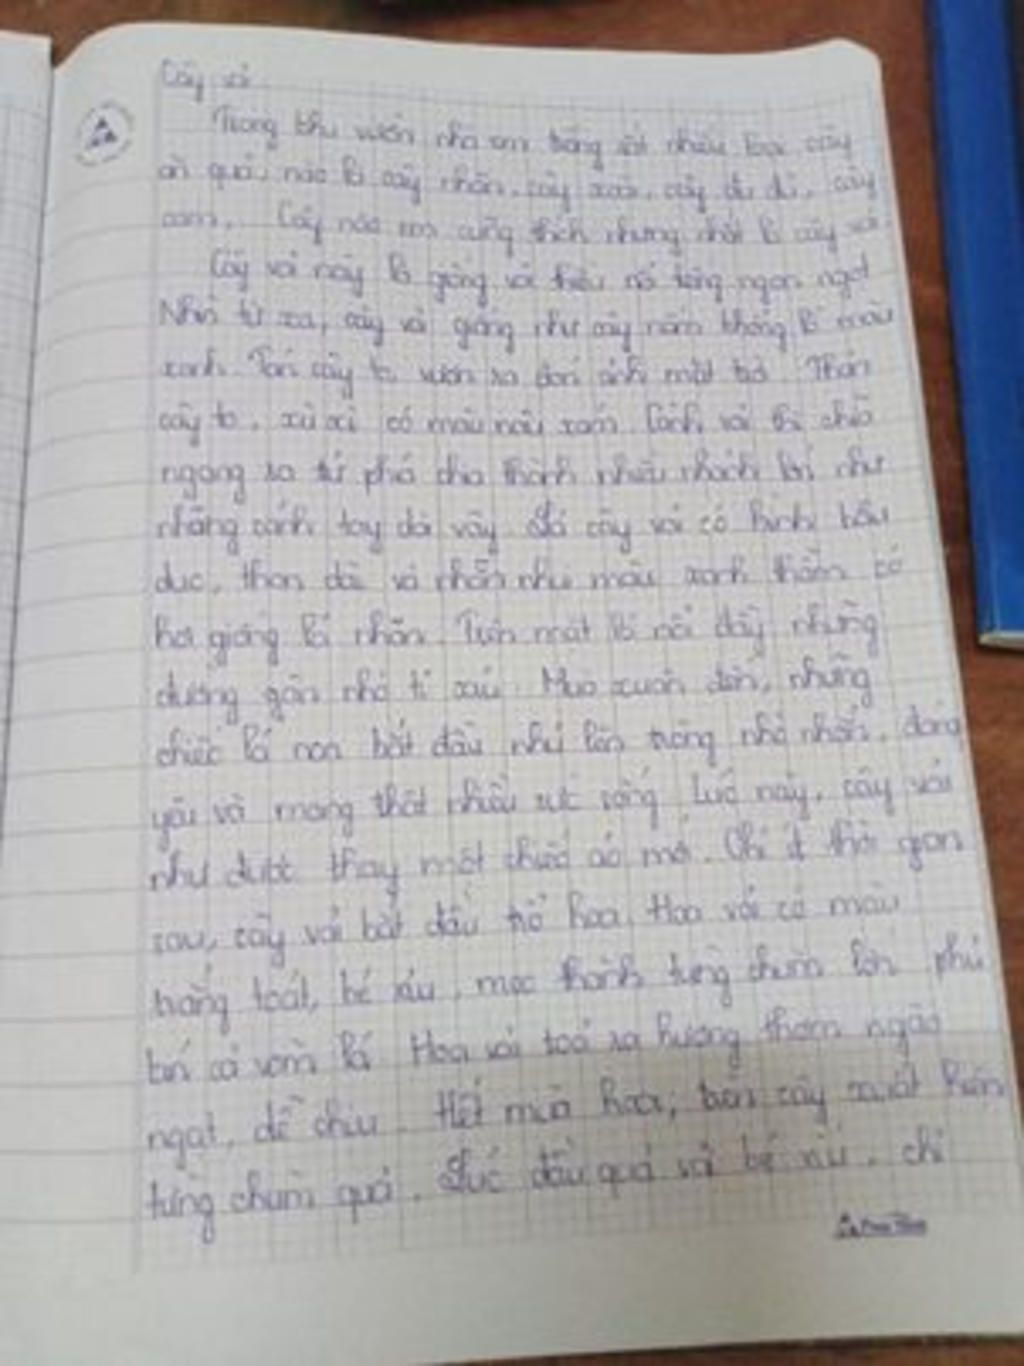 Cây vải
Trong khu vườn nhà em trồng rất nhiều loại cây
ăn quả, nào là cây nhãn, cây xoài, cây đu đủ, cây
cam, Cây nào em cũng thích nhưng nhất là cây vải
Cây vải này là giống vải thiều nổi tiếng ngon ngọt
Nhìn từ xa, cây vải giống như cây nấm khổng lồ màu
xanh. Tán cây to vươn ra đón ánh mặt trời. Thân
cây to, xù xì có màu nâu xám. Cành vải thì chĩa
ngang ra tứ phía chia thành nhiều nhánh lại như
những cánh tay dài vậy. Lá cây vải có hình bầu
dục, thon dài và nhẵn như màu xanh thẫm có
hơi giống lá nhãn. Trên mặt lá nổi đầy những
đường gân nhỏ tí xíu. Mùa xuân đến, những
chiếc lá non bắt đầu nhú lên trông nhỏ nhắn, đáng
yêu và mang thật nhiều sức sống. Lúc này, cây vải
như được thay một chiếc áo mới. Chỉ ít thời gian
sau, cây vải bắt đầu trổ hoa. Hoa vải có màu
trắng toát, bé xíu, mọc thành từng chùm lớn phủ
kín cả vòm lá. Hoa vải toả ra hương thơm ngào
ngạt, dễ chịu. Hết mùa hoa, trên cây xuất hiện
từng chùm quả. Lúc đầu quả vải bé xíu, chỉ